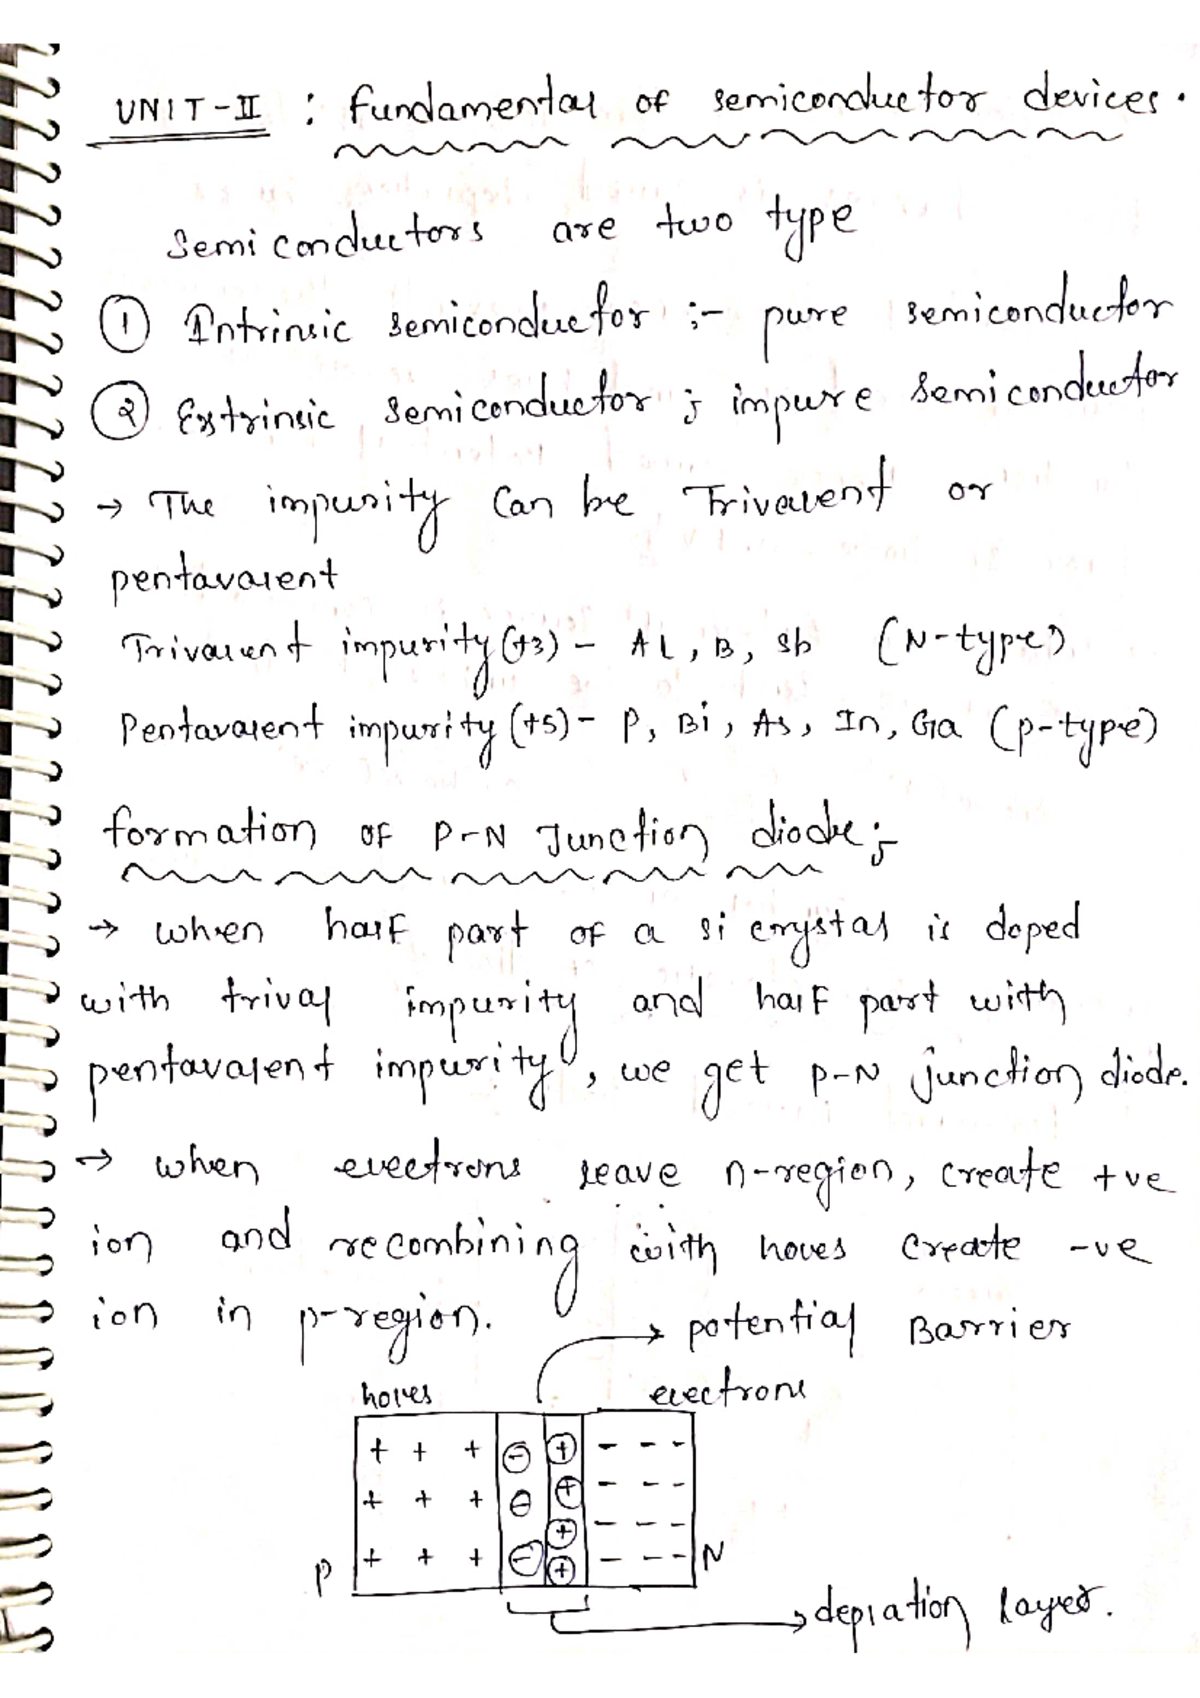 UNIT-II : Fundamental of semiconductor devices.
Semiconductors are two type
① Intrinsic semiconductor :- pure semiconductor
② Extrinsic semiconductor :- impure semiconductor
→ The impurity can be Trivalent or
pentavalent
Trivalent impurity (+3) - Al, B, Sb (N-type)
Pentavalent impurity (+5) - P, Bi, As, In, Ga (p-type)
formation of P-N Junction diode :-
→ when half part of a si crystal is doped
with trival impurity and half part with
pentavalent impurity, we get p-N junction diode.
→ when electrons leave n-region, create +ve
ion and recombining with holes create -ve
ion in p-region.
→ potential Barrier
holes electrons
+ + + ⊖ ⊕ - - -
+ + + ⊖ ⊕ - - -
⊕ - - -
P + + + ⊖ ⊕ - - - N
→ deplation layer.